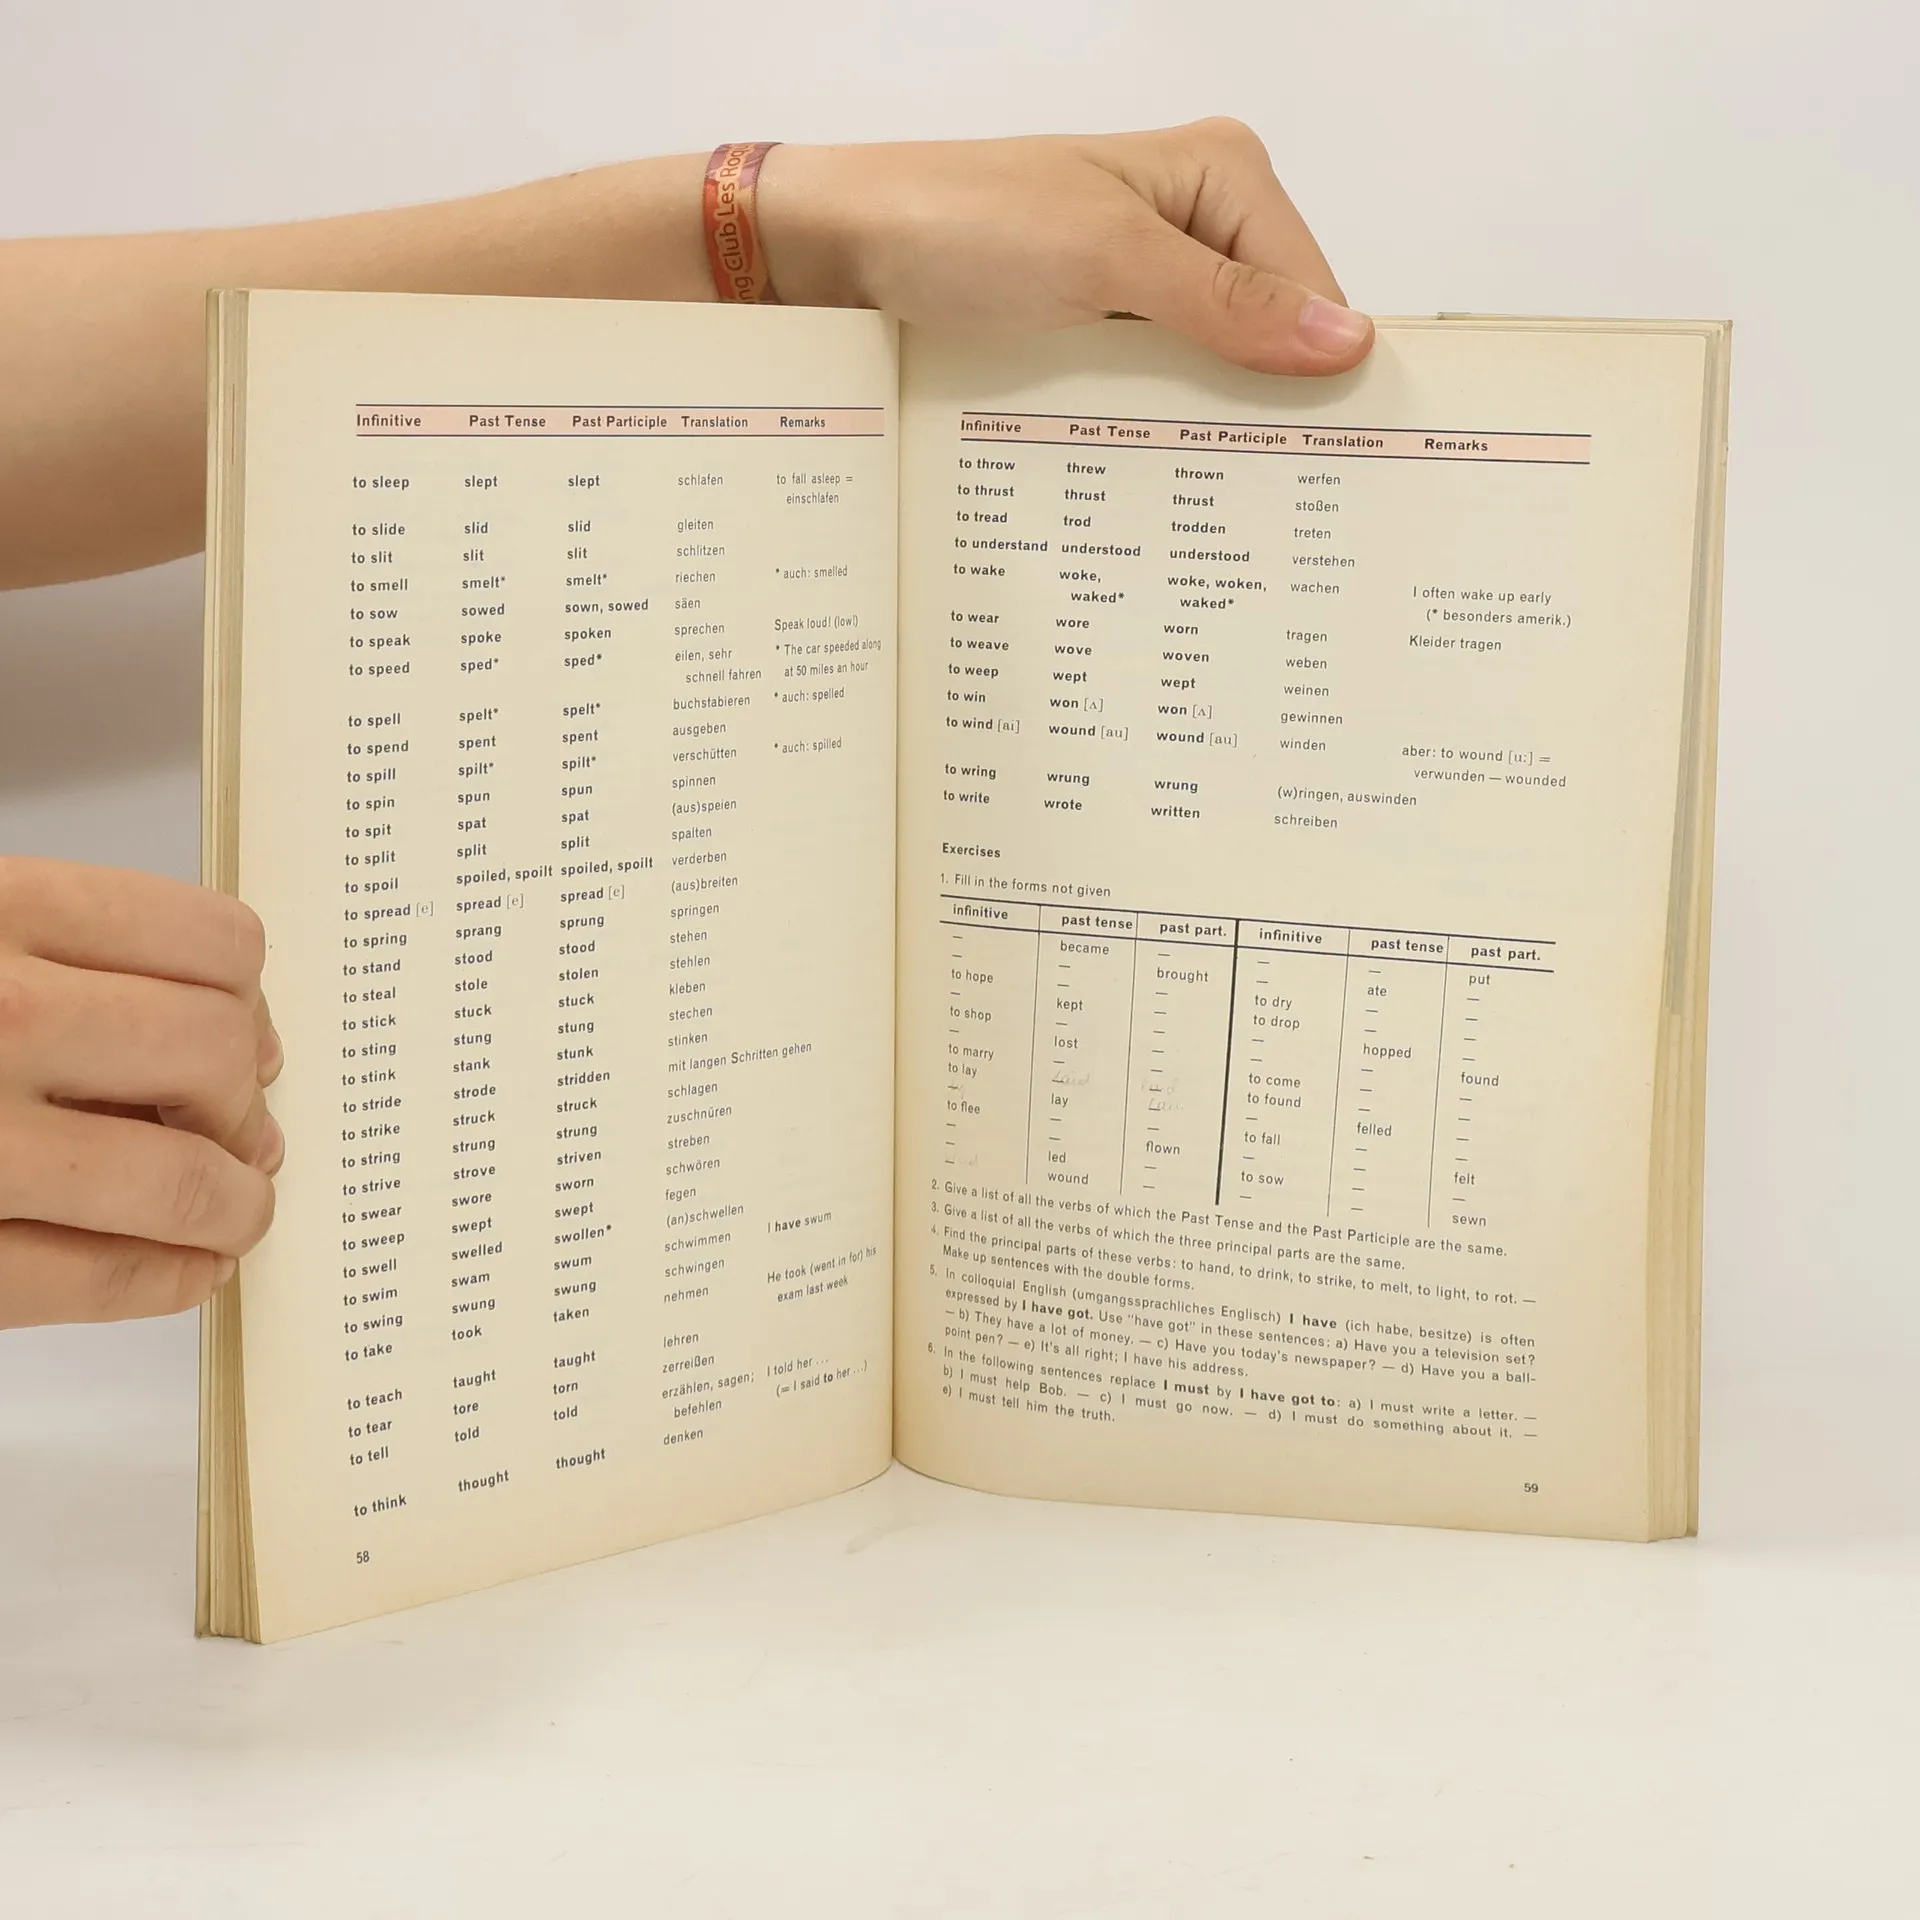 ng Club Les Roqu
Infinitive Past Tense Past Participle Translation Remarks
to sleep slept slept schlafen to fall asleep =
einschlafen
to slide slid slid gleiten
to slit slit slit schlitzen
to smell smelt* smelt* riechen * auch: smelled
to sow sowed sown, sowed säen
to speak spoke spoken sprechen Speak loud! (low!)
to speed sped* sped* eilen, sehr * The car speeded along
schnell fahren at 50 miles an hour
to spell spelt* spelt* buchstabieren * auch: spelled
to spend spent spent ausgeben
to spill spilt* spilt* verschütten * auch: spilled
to spin spun spun spinnen
to spit spat spat (aus)speien
to split split split spalten
to spoil spoiled, spoilt spoiled, spoilt verderben
to spread [e] spread [e] spread [e] (aus)breiten
to spring sprang sprung springen
to stand stood stood stehen
to steal stole stolen stehlen
to stick stuck stuck kleben
to sting stung stung stechen
to stink stank stunk stinken
to stride strode stridden mit langen Schritten gehen
to strike struck struck schlagen
to string strung strung zuschnüren
to strive strove striven streben
to swear swore sworn schwören
to sweep swept swept fegen
to swell swelled swollen* (an)schwellen
to swim swam swum schwimmen I have swum
to swing swung swung schwingen
to take took taken nehmen He took (went in for) his
exam last week
to teach taught taught lehren
to tear tore torn zerreißen
to tell told told erzählen, sagen; I told her ...
befehlen (= I said to her ...)
to think thought thought denken
58
Infinitive Past Tense Past Participle Translation Remarks
to throw threw thrown werfen
to thrust thrust thrust stoßen
to tread trod trodden treten
to understand understood understood verstehen
to wake woke, woke, woken, wachen I often wake up early
waked* waked* (* besonders amerik.)
to wear wore worn tragen Kleider tragen
to weave wove woven weben
to weep wept wept weinen
to win won [ʌ] won [ʌ] gewinnen
to wind [ai] wound [au] wound [au] winden aber: to wound [u:] =
verwunden — wounded
to wring wrung wrung (w)ringen, auswinden
to write wrote written schreiben
Exercises
1. Fill in the forms not given
infinitive past tense past part. infinitive past tense past part.
— became — — — put
— — brought — ate —
to hope — — to dry — —
— kept — to drop — —
to shop — — — hopped —
— lost — — — found
to marry — — to come — —
to lay — laid — to found — —
— lay — — felled —
to flee — — to fall — —
— — flown — — felt
— led — to sow — —
— wound — — — sewn
2. Give a list of all the verbs of which the Past Tense and the Past Participle are the same.
3. Give a list of all the verbs of which the three principal parts are the same.
4. Find the principal parts of these verbs: to hand, to drink, to strike, to melt, to light, to rot. —
Make up sentences with the double forms.
5. In colloquial English (umgangssprachliches Englisch) I have (ich habe, besitze) is often
expressed by I have got. Use "have got" in these sentences: a) Have you a television set?
— b) They have a lot of money. — c) Have you today's newspaper? — d) Have you a ball-
point pen? — e) It's all right; I have his address.
6. In the following sentences replace I must by I have got to: a) I must write a letter. —
b) I must help Bob. — c) I must go now. — d) I must do something about it. —
e) I must tell him the truth.
59